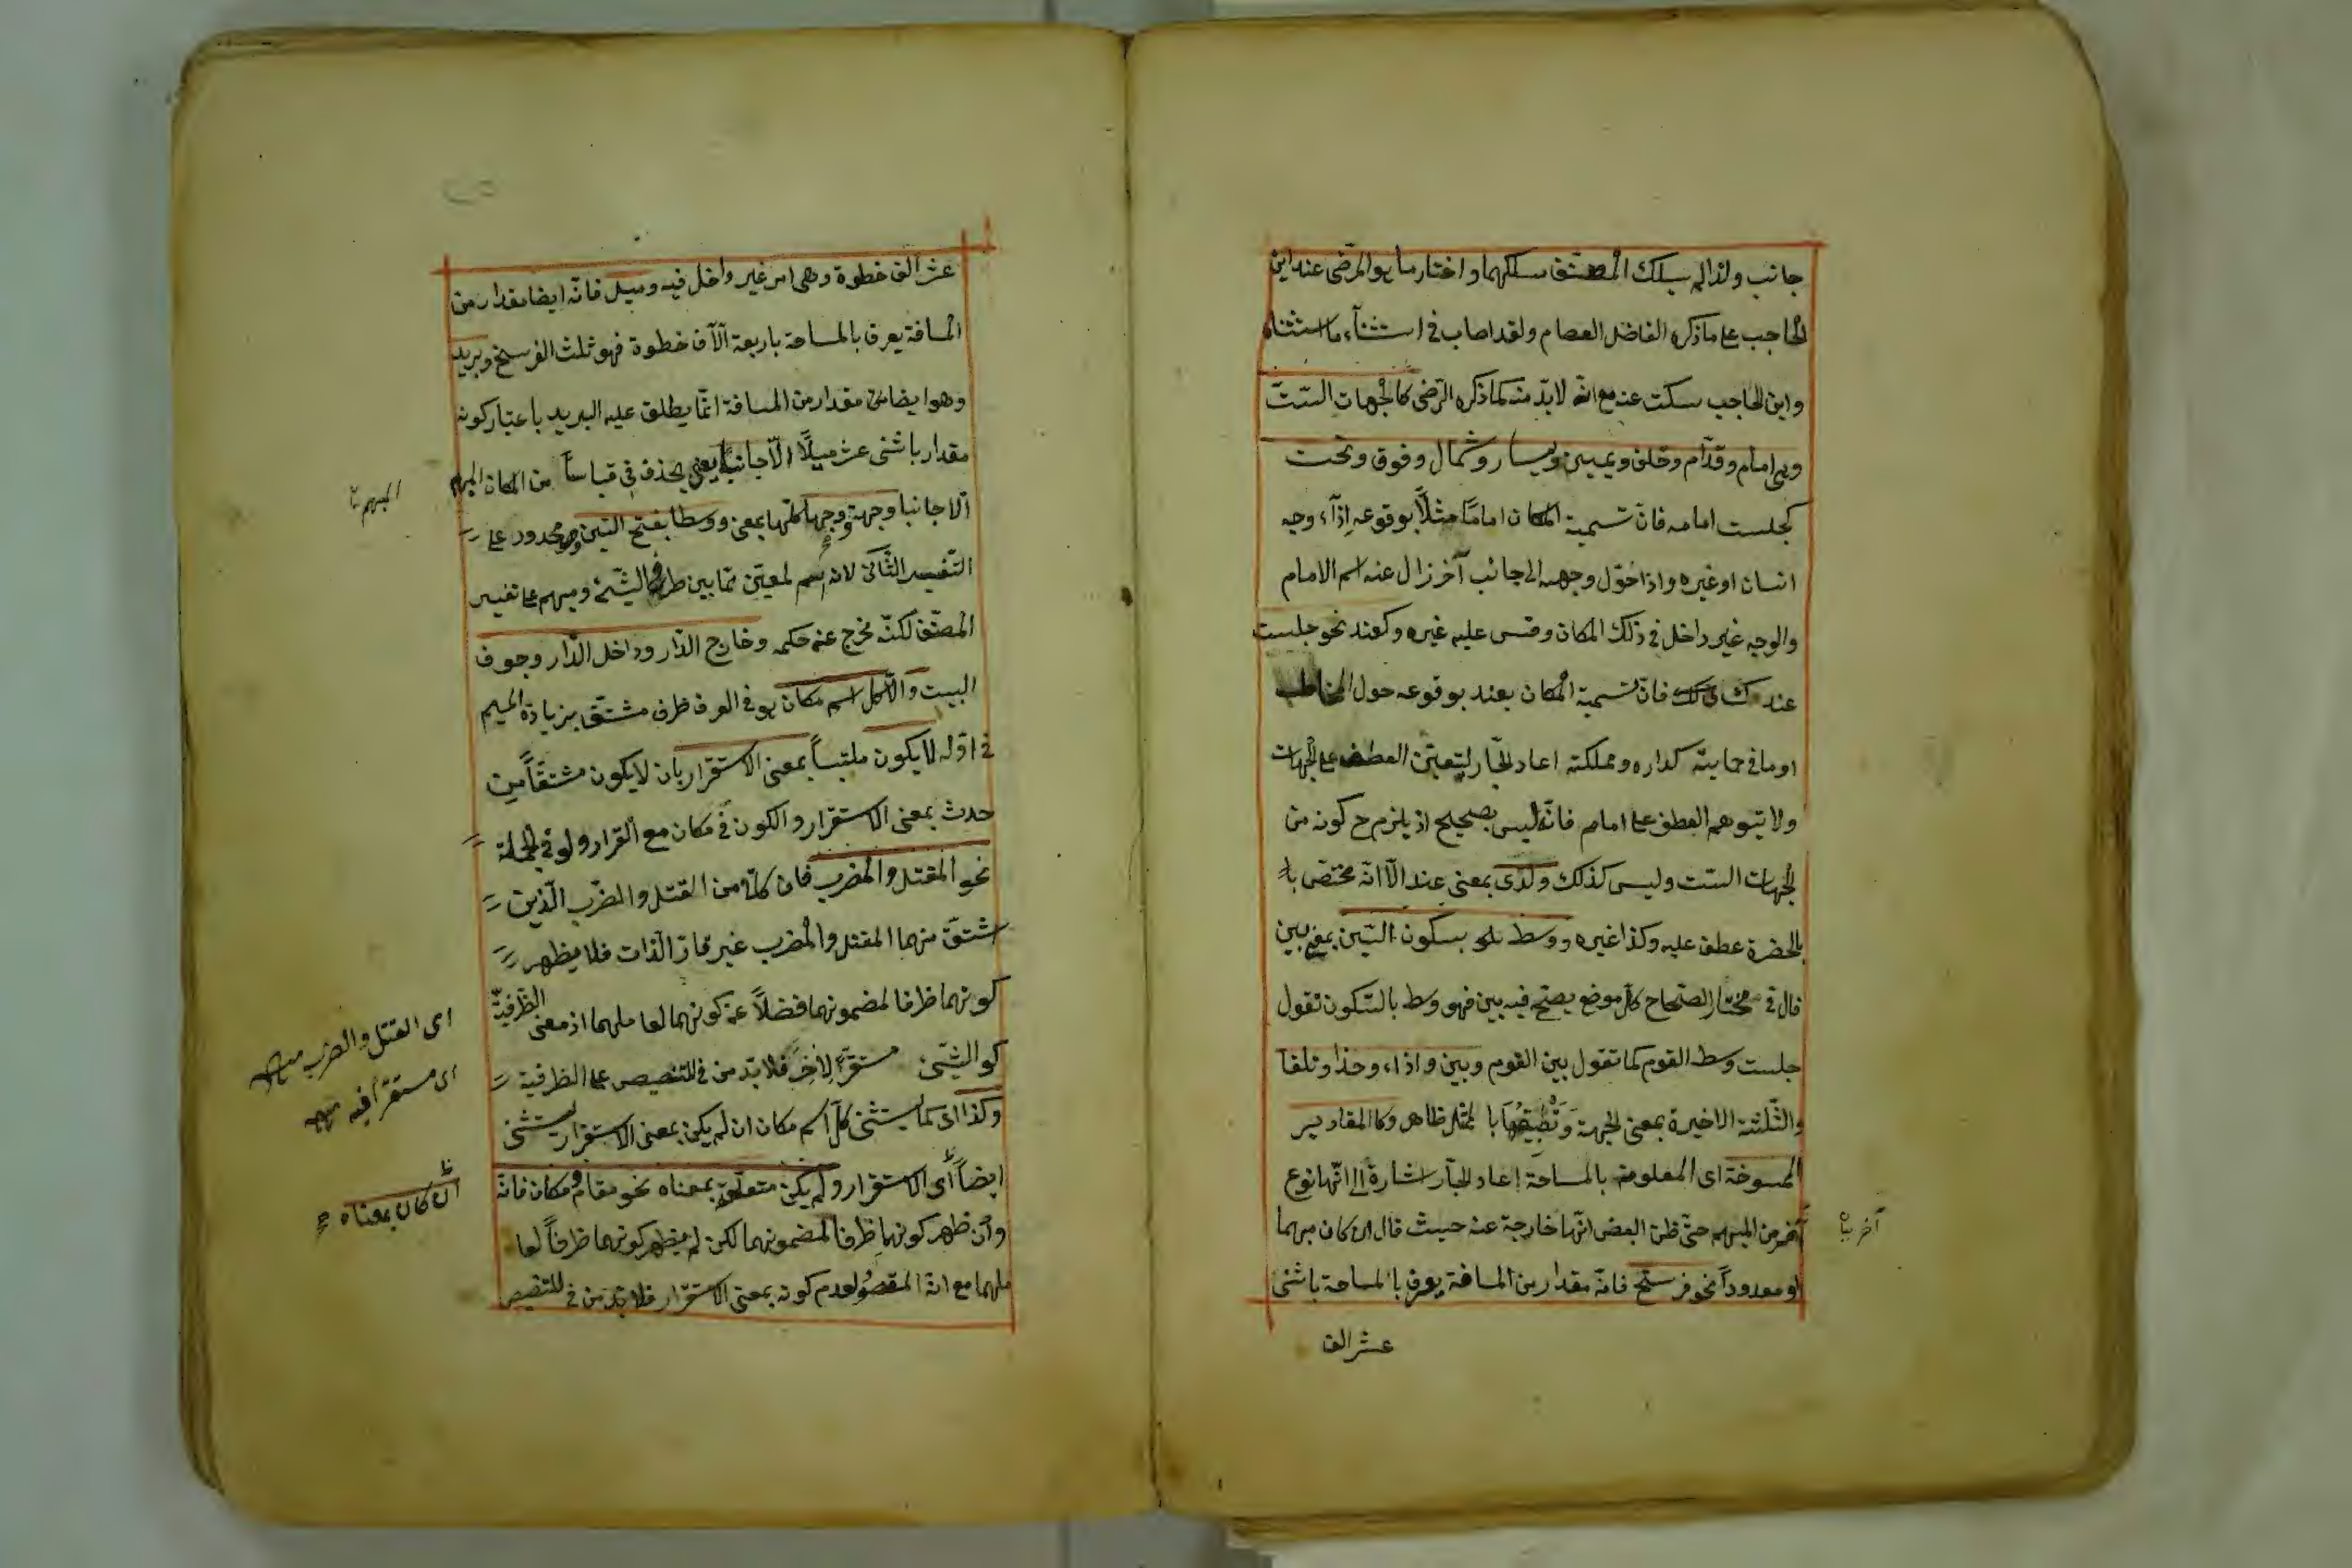 جانب ولذا لم يسلك المصنّف مسلكهما واختار ما هو المرضى عند ابن
الحاجب على ما ذكره الفاضل العصام ولقد اصاب فى استثنآء ما استثناه
وابن الحاجب سكت عنه مع انّه لا بدّ منه كما ذكره الرّضى كالجهات الستّ
وهى امام وقدّام وخلف ويمين ويسار وشمال وفوق وتحت
كجلست امامه فانّ تسمية المكان اماماً مثلاً بوقوعه إزآء وجه
انسان او غيره واذا حوّل وجهه الى جانب آخر زال عنه اسم الامام
والوجه غير داخل فى ذلك المكان وقس عليه غيره وكعند نحو جلست
عندك فانّ تسمية المكان بعند بوقوعه حول المخاطب
او ما فى حمايته كداره ومملكته اعاد الجّار ليتعيّن العطف على الجهات
ولا يتوهم العطف على امام فانّه ليس بصحيح اذ يلزم ح كونه من
الجهات الستّ وليس كذلك ولدى بمعنى عند الّا انّه مختصّ
بالحضرة عطف عليه وكذا غيره ووسط بسكون السّين بمعنى بين
قال فى مختار الصّحاح كلّ موضع يصحّ فيه بين فهو وسط بالسّكون تقول
جلست وسط القوم كما تقول بين القوم وبين وازاء وحذاء وتلقا
والثّلثة الاخيرة بمعنى الجهة ظاهر وكالمقادير
الممسوحة اى المعلومة بالمساحة إعاد الجّار اشارة الى انّها نوع
آخر من المبهم حتّى ظن البعض انّها خارجة عنه حيث قال ان كان مبهما
او معدوداً نحو فرسخ فانّه مقدار من المسافة يعرف بالمساحة باثنى
عشر الف
آخر
عشر الف خطوة وهى امر غير داخل فيه وميل فانّه ايضا مقدار من
المسافة يعرف بالمساحة باربعة آلآف خطوة فهو ثلث الفرسخ وبريد
وهو ايضا مقدار من المسافة انّما يطلق عليه البريد باعتبار كونه
مقدار باثنى عشر ميلاً الّا جانباً يعنى يحذف فى قياساً من المكان المبهم
الّا جانبا وجهة ووجهاً كلها بمعنى ووسطا بفتح السّين وهو محدود على
التّفسير الثّانى لانه اسم لمعيّن ممّا بين طرفى الشّئ ومبهم على تفسير
المصنّف لكنّه مخرج عنه حكمه وخارج الدّار وداخل الدّار وجوف
البيت والّا كل اسم مكان هو فى العرف ظرف مشتقّ بزيادة الميم
فى اوّله لا يكون ملتبساً بمعنى الاستقرار بان لا يكون مشتقّاً من
حدث بمعنى الاستقرار والكون فى مكان مع القرار ولو فى الجملة
نحو المقتل والمضرب فان كلّا من القتل والضّرب الّذين
اشتقّ منهما المقتل والمضرب غير قارّ الّذات فلا يظهر
كونهما ظرفا لمضمونهما فضلاً عن كونهما لعاملهما اذ معنى الظّرفيّة
كو الشّئ مستقرّاً لِاخَرَ فلا بدّ من فى للتنصيص على الظرفية
وكذا اى كما يستثنى كلّ اسم مكان ان لم يكن بمعنى الاستقرار يستثنى
ايضاً اى الاستقرار ولم يكن متعلّقه بمعناه نحو مقام ومكان فانّه
وان ظهر كونهما ظرفا لمضمونهما لكن لم يظهر كونهما ظرفاً لعا
ملهما مع انّه المقصود لعدم كونه بمعنى الاستقرار فلا بدّ من فى للتنصيص
المبهم
اى القتل والضرب
اى مستقرّاً فيه
ان كان بمعناه